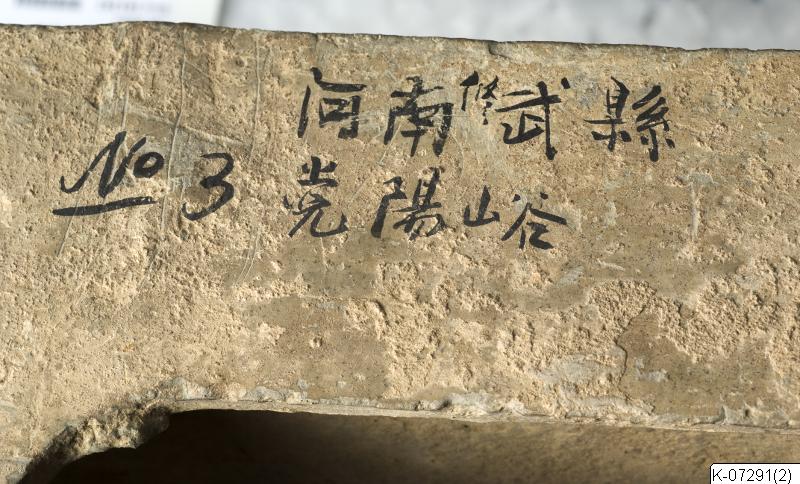 河南修武縣
No 3 党陽山谷
K-07291(2)